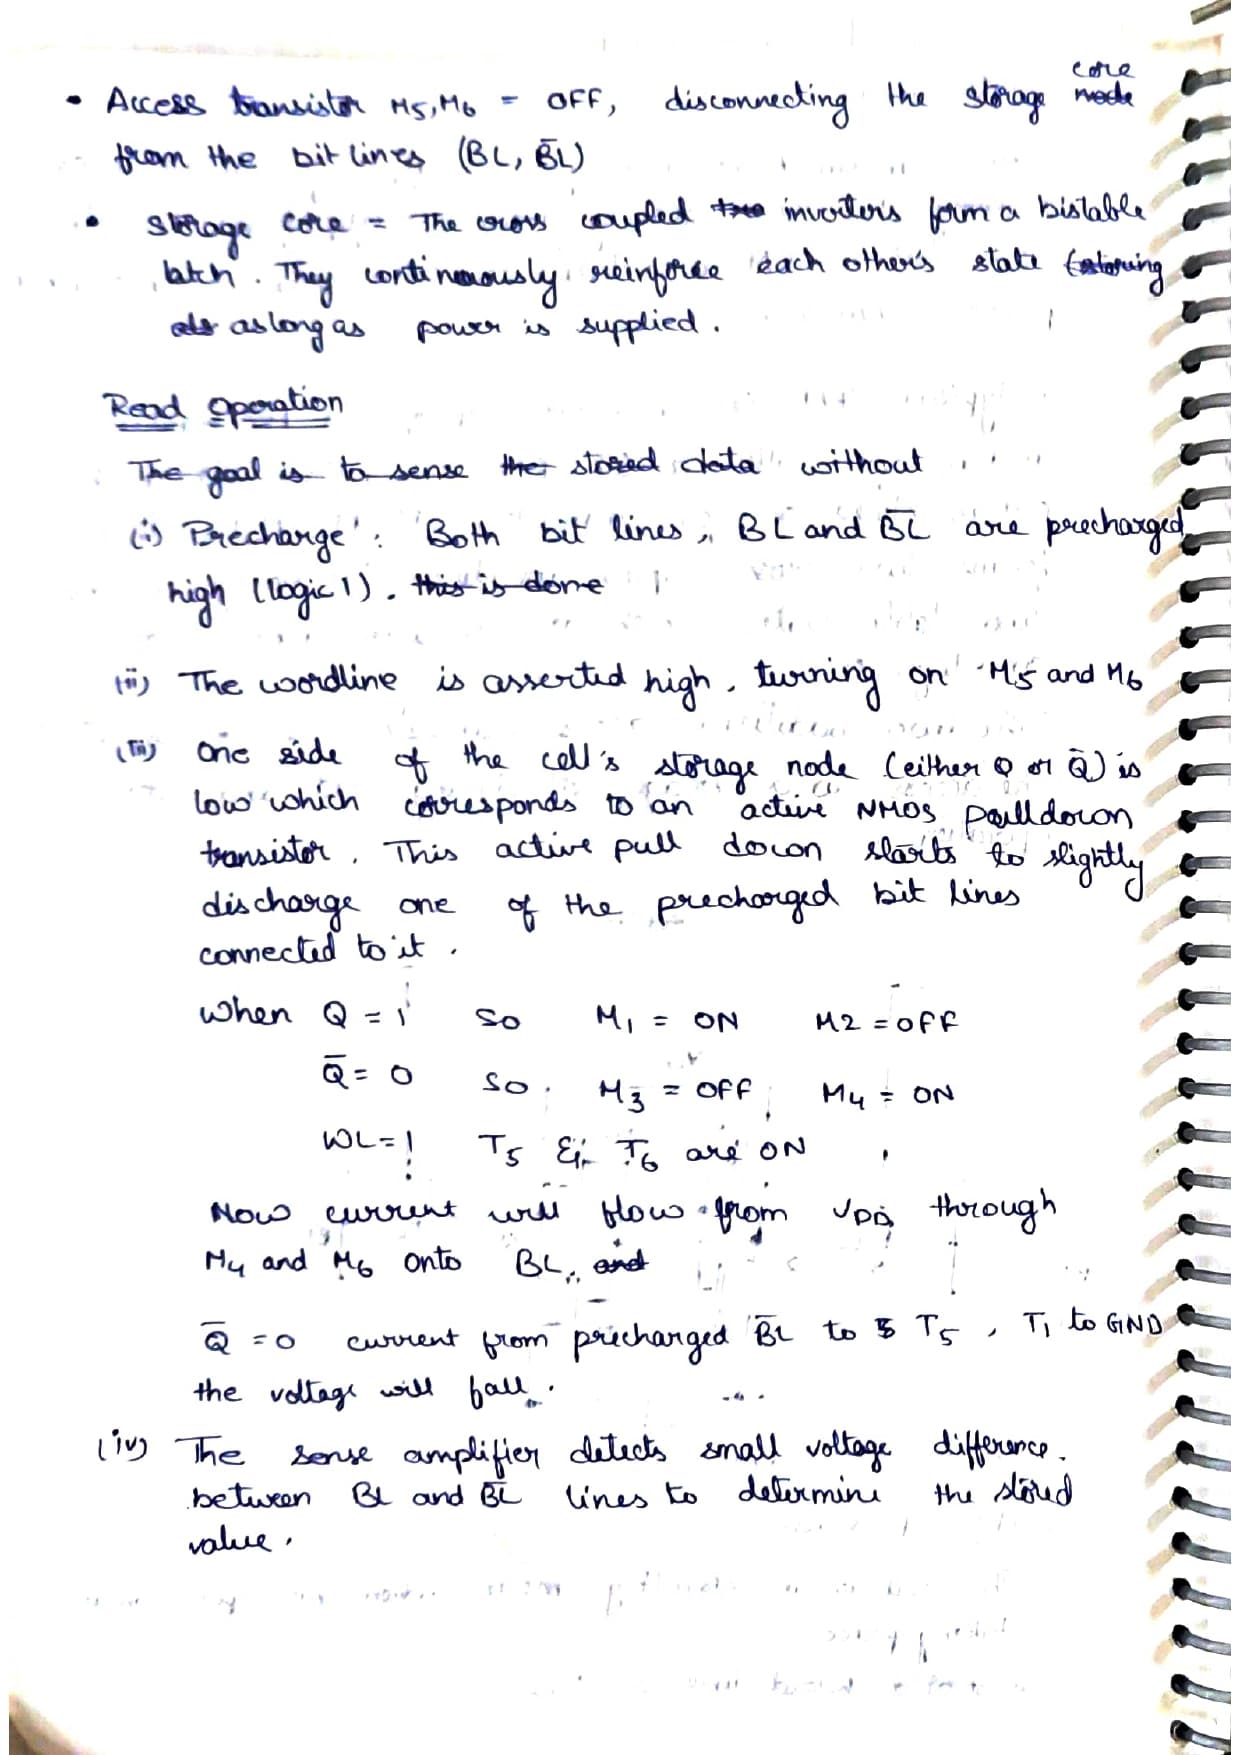 • Access transistor M5, M6 = OFF, disconnecting the storage core node
from the bit lines (BL, B̄L)
• Storage core = The cross coupled two inverters form a bistable
latch. They continuously reinforce each other's state (storing
as long as power is supplied.
Read Operation
The goal is to sense the stored data without
(i) Precharge : Both bit lines, BL and B̄L̄ are precharged
high (logic 1). this is done
(ii) The wordline is asserted high, turning on M5 and M6
(iii) One side of the cell's storage node (either Q or Q̄) is
low which corresponds to an active NMOS pulldown
transistor. This active pull down starts to slightly
discharge one of the precharged bit lines
connected to it.
When Q = 1 so M1 = ON M2 = OFF
Q̄ = 0 so M3 = OFF M4 = ON
WL = 1 T5 & T6 are ON
Now current will flow from VDD through
M4 and M6 onto BL. and
Q̄ = 0 current from precharged B̄L to 5 T5, T1 to GND
the voltage will fall.
(iv) The sense amplifier detects small voltage difference
between BL and B̄L̄ lines to determine the stored
value.